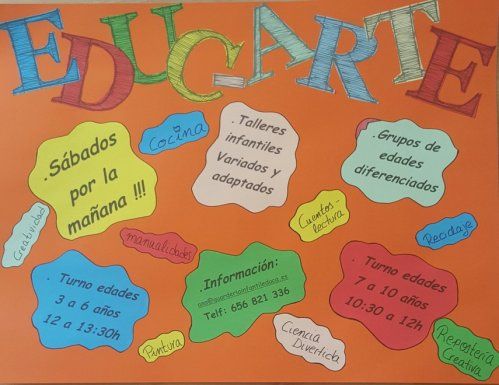 EDUC-ARTE
.Sábados
por la
mañana !!!
Cocina
.Talleres
infantiles
Variados y
adaptados
.Grupos de
edades
diferenciados
Creatividad
manualidades
Cuentos-
lectura
Reciclaje
.Turno edades
3 a 6 años
12 a 13:30h
.Información:
Telf: 656 821 336
.Turno edades
7 a 10 años
10:30 a 12h
Pintura
Ciencia
Divertida
Repostería
Creativa